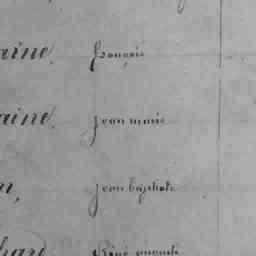 aine, françois
aine, jean marie
n, jean baptiste
hard